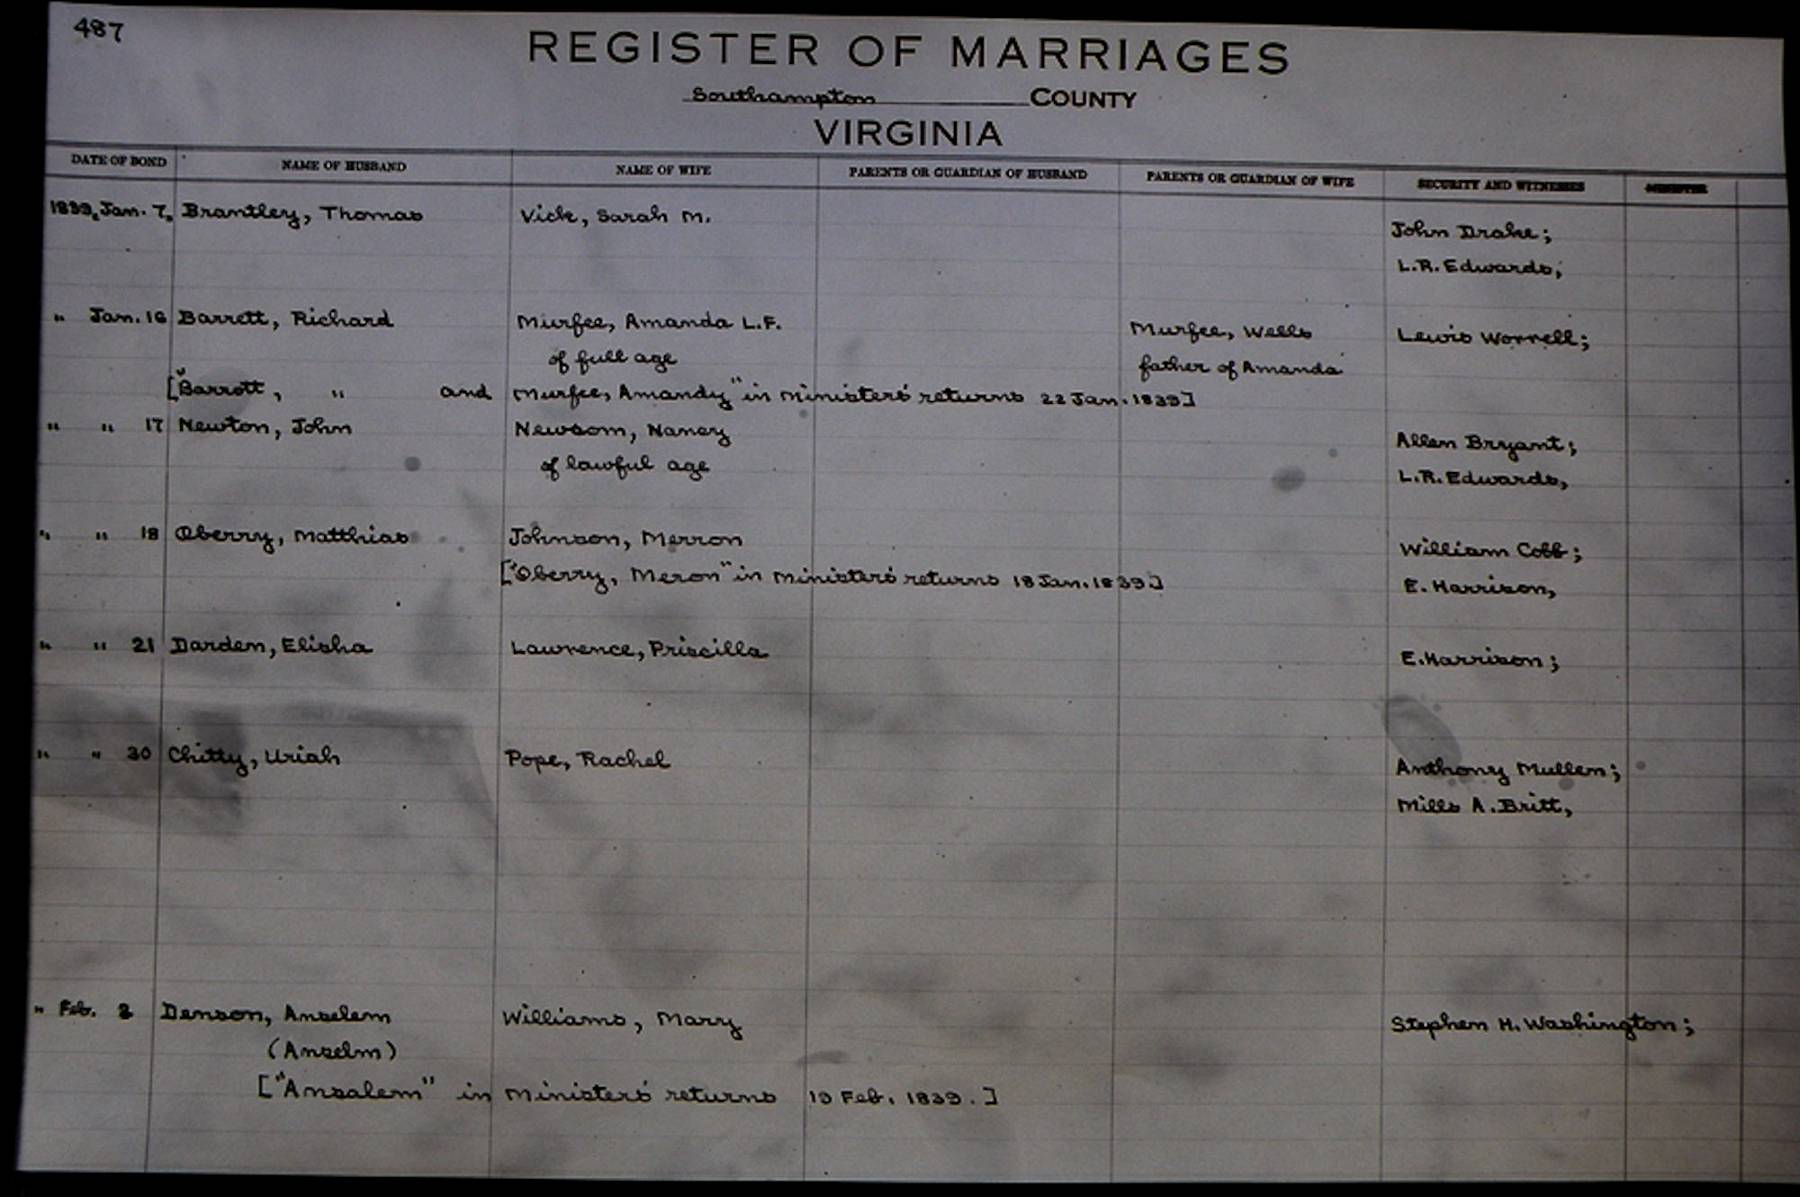 487
REGISTER OF MARRIAGES
Southampton COUNTY
VIRGINIA
DATE OF BOND NAME OF HUSBAND NAME OF WIFE PARENTS OR GUARDIAN OF HUSBAND PARENTS OR GUARDIAN OF WIFE SECURITY AND WITNESSES MINISTER
1839, Jan. 7, Brantley, Thomas Vick, Sarah M.
John Drake;
L.R. Edwards;
" Jan. 16 Barrett, Richard Murfee, Amanda L.F. Murfee, Wells Lewis Worrell;
of full age father of Amanda
["Barrott, " and Murfee, Amandy" in ministers' returns 22 Jan. 1839]
" " 17 Newton, John Newsom, Nancy Allen Bryant;
of lawful age L.R. Edwards,
" " 18 Oberry, Matthias Johnson, Merron William Cobb;
["Oberry, Meron" in ministers' returns 18 Jan. 1839.] E. Harrison,
" " 21 Darden, Elisha Lawrence, Priscilla E. Harrison;
" " 30 Chitty, Uriah Pope, Rachel Anthony Mullen;
Mills A. Britt,
" Feb. 2 Denson, Anselem Williams, Mary Stephen H. Washington;
(Anselm)
["Ansalem" in ministers' returns 19 Feb. 1839.]